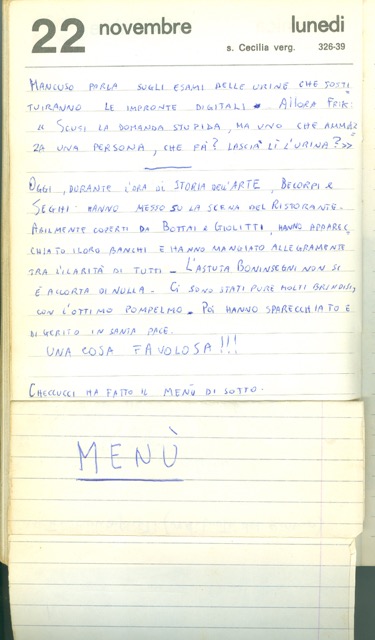 22 novembre lunedì
s. Cecilia verg. 326-39
MANCUSO PARLA SUGLI ESAMI DELLE URINE CHE SOSTI
TUIRANNO LE IMPRONTE DIGITALI. ALLORA FRIK:
« SCUSI LA DOMANDA STUPIDA, MA UNO CHE AMMAZ
ZA UNA PERSONA, CHE FA? LASCIA LÌ L'URINA? »
OGGI, DURANTE L'ORA DI STORIA DELL'ARTE, BECORPI E
SEGHI HANNO MESSO SU LA SCENA DEL RISTORANTE.
ABILMENTE COPERTI DA BOTTAI E GIOLITTI, HANNO APPAREC
CHIATO I LORO BANCHI E HANNO MANGIATO ALLEGRAMENTE
TRA L'ILARITÀ DI TUTTI - L'ASTUTA BONINSEGNI NON SI
È ACCORTA DI NULLA. CI SONO STATI PURE MOLTI BRINDISI,
CON L'OTTIMO POMPELMO. POI HANNO SPARECCHIATO E
DIGERITO IN SANTA PACE.
UNA COSA FAVOLOSA!!!
CHECCUCCI HA FATTO IL MENÙ DI SOTTO.
MENÙ